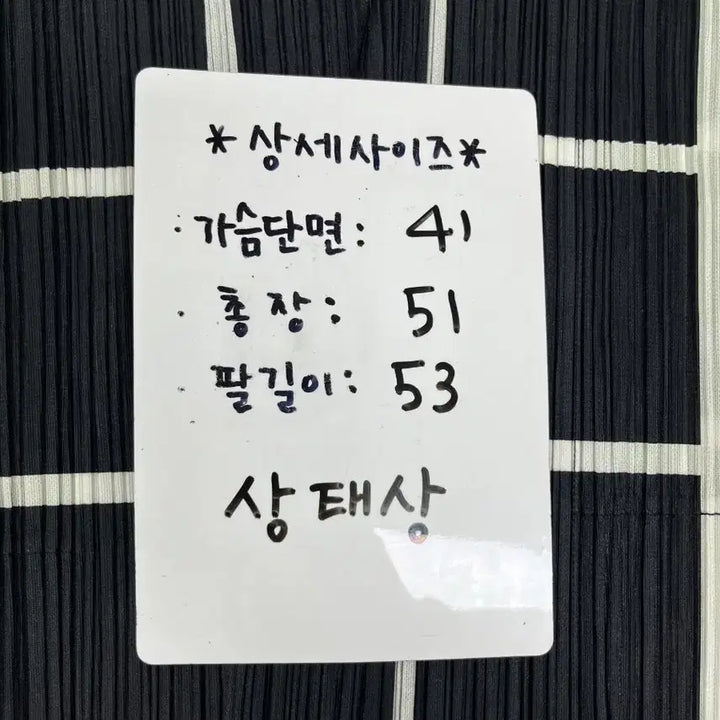 *상세사이즈*
· 가슴단면: 41
· 총장: 51
· 팔길이: 53
상태상